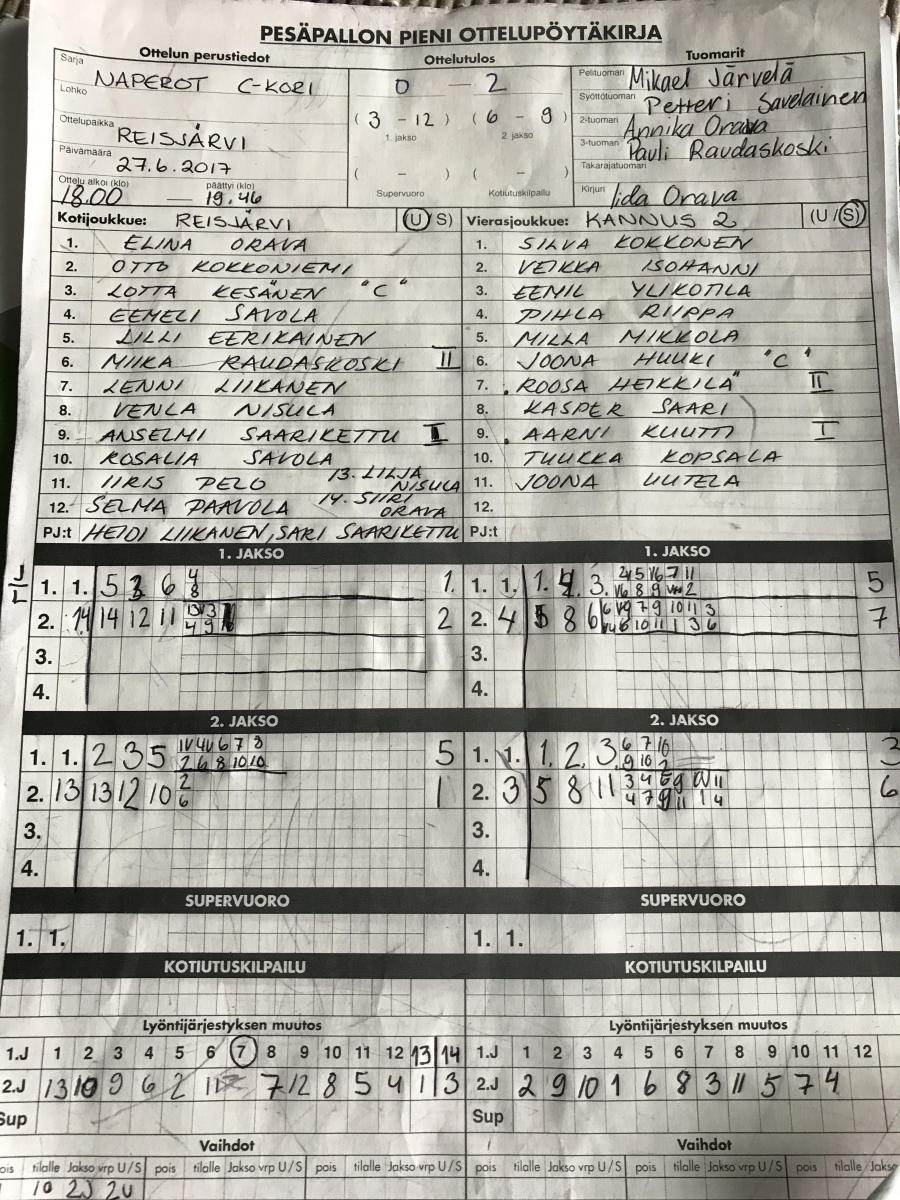 PESÄPALLON PIENI OTTELUPÖYTÄKIRJA
Ottelun perustiedot Ottelutulos Tuomarit
Sarja NAPEROT C-KORI
Lohko
Ottelupaikka REISJÄRVI
Päivämäärä 27.6.2017
Ottelu alkoi (klo) päättyi (klo)
18.00 — 19.46
0 — 2
( 3 - 12 ) ( 6 - 9 )
1. jakso 2. jakso
( - ) ( - )
Supervuoro Kotiutuskilpailu
Pelituomari Mikael Järvelä
Syöttötuomari Petteri Savelainen
2-tuomari Annika Orava
3-tuomari Pauli Raudaskoski
Takarajatuomari
Kirjuri Iida Orava
Kotijoukkue: REISJÄRVI (U/S)
1. ELINA ORAVA
2. OTTO KOKKONIEMI
3. LOTTA KESÄNEN "C"
4. EEMELI SAVOLA
5. LILLI EERIKAINEN
6. MIIKA RAUDASKOSKI II
7. LENNI LIIKANEN
8. VENLA NISULA
9. ANSELMI SAARIKETTU I
10. ROSALIA SAVOLA
11. IIRIS PELO 13. LILJA NISULA
12. SELMA PAAVOLA 14. SIIRI ORAVA
PJ:t HEIDI LIIKANEN, SARI SAARIKETTU
Vierasjoukkue: KANNUS 2 (U/S)
1. SILVA KOKKONEN
2. VEIKKA ISOHANNI
3. EEMIL YLIKOTILA
4. PIHLA RIIPPA
5. MILLA MIKKOLA
6. JOONA HUUKI "C"
7. ROOSA HEIKKILÄ II
8. KASPER SAARI
9. AARNI KUUTTI I
10. TUUKKA KOPSALA
11. JOONA UUTELA
12.
PJ:t
1. JAKSO 1. JAKSO
J/L
1. 1. 5 3 6 4 8 1
2. 14 14 12 11 2
3.
4.
1. 1. 1. 4. 3. 5
2. 4 5 8 6 7
3.
4.
2. JAKSO 2. JAKSO
1. 1. 2 3 5 1V 4V 6 7 8 5
2 6 8 10 10
2. 13 13 12 10 2 6 1
3.
4.
1. 1. 1. 2. 3. 6 7 10 3
9 10 2
2. 3 5 8 11 6
4 7 9 11 1 4
3.
4.
SUPERVUORO SUPERVUORO
1. 1. 1. 1.
KOTIUTUSKILPAILU KOTIUTUSKILPAILU
Lyöntijärjestyksen muutos Lyöntijärjestyksen muutos
1.J 1 2 3 4 5 6 7 8 9 10 11 12 13 14 1.J 1 2 3 4 5 6 7 8 9 10 11 12
2.J 13 10 9 6 2 11 7 12 8 5 4 1 3 2.J 2 9 10 1 6 8 3 11 5 7 4
Sup Sup
Vaihdot Vaihdot
pois tilalle Jakso vrp U/S pois tilalle Jakso vrp U/S pois tilalle Jakso vrp U/S pois tilalle Jakso vrp U/S pois tilalle Jakso vrp U/S pois tilalle Jakso
10 2J 2U